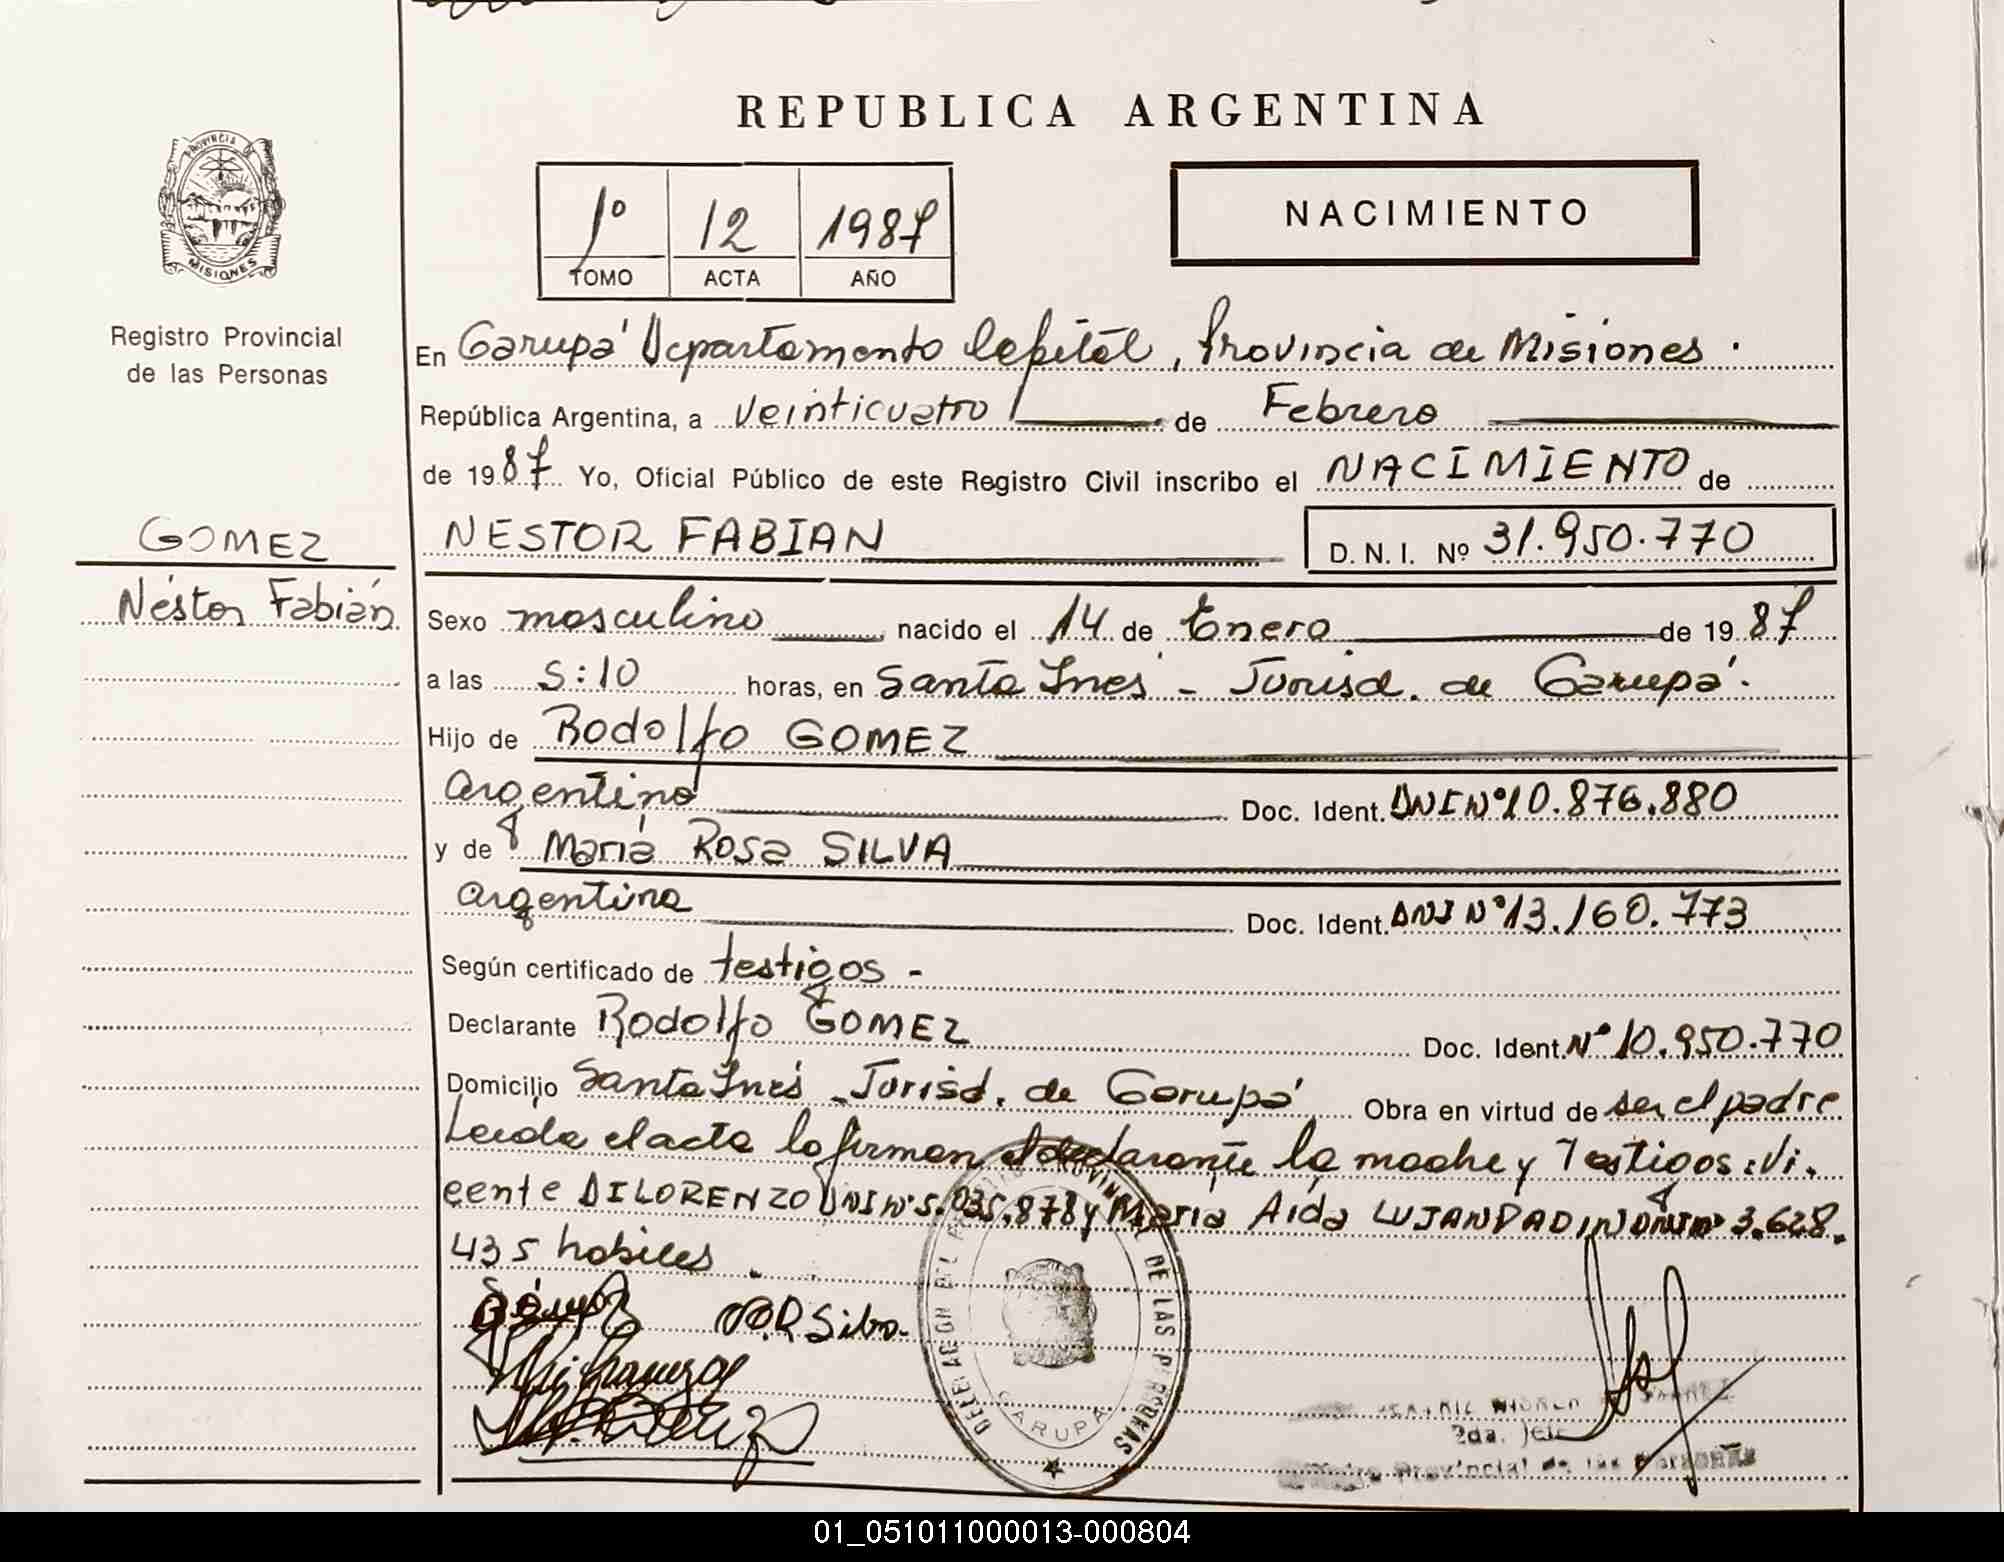 REPUBLICA ARGENTINA
PROVINCIA DE MISIONES
1º 12 1987
TOMO ACTA AÑO
NACIMIENTO
Registro Provincial
de las Personas
En Garupá Departamento Capital, Provincia de Misiones.
República Argentina, a veinticuatro de Febrero
de 1987 Yo, Oficial Público de este Registro Civil inscribo el NACIMIENTO de
GOMEZ
NESTOR FABIAN D. N. I. Nº 31.950.770
Néstor Fabián
Sexo masculino nacido el 14 de Enero de 1987
a las 5:10 horas, en Santa Inés - Jurisd. de Garupá.
Hijo de Rodolfo GOMEZ
argentino Doc. Ident. DNI Nº 10.876.880
y de María Rosa SILVA
argentina Doc. Ident. DNI Nº 13.160.773
Según certificado de testigos -
Declarante Rodolfo GOMEZ Doc. Ident. Nº 10.950.770
Domicilio Santa Inés - Jurisd. de Garupá Obra en virtud de ser el padre
Leída el acta lo firman el declarante la madre y Testigos: Vi-
cente DILORENZO DNI Nº 5.035.878 y María Aída LUJAN PADIN DNI Nº 3.628.
435 hábiles.
DELEGACION DEL REGISTRO PROVINCIAL DE LAS PERSONAS
GARUPA
M.R Silva.
2da. Jefe
Registro Provincial de las Personas
01_051011000013-000804